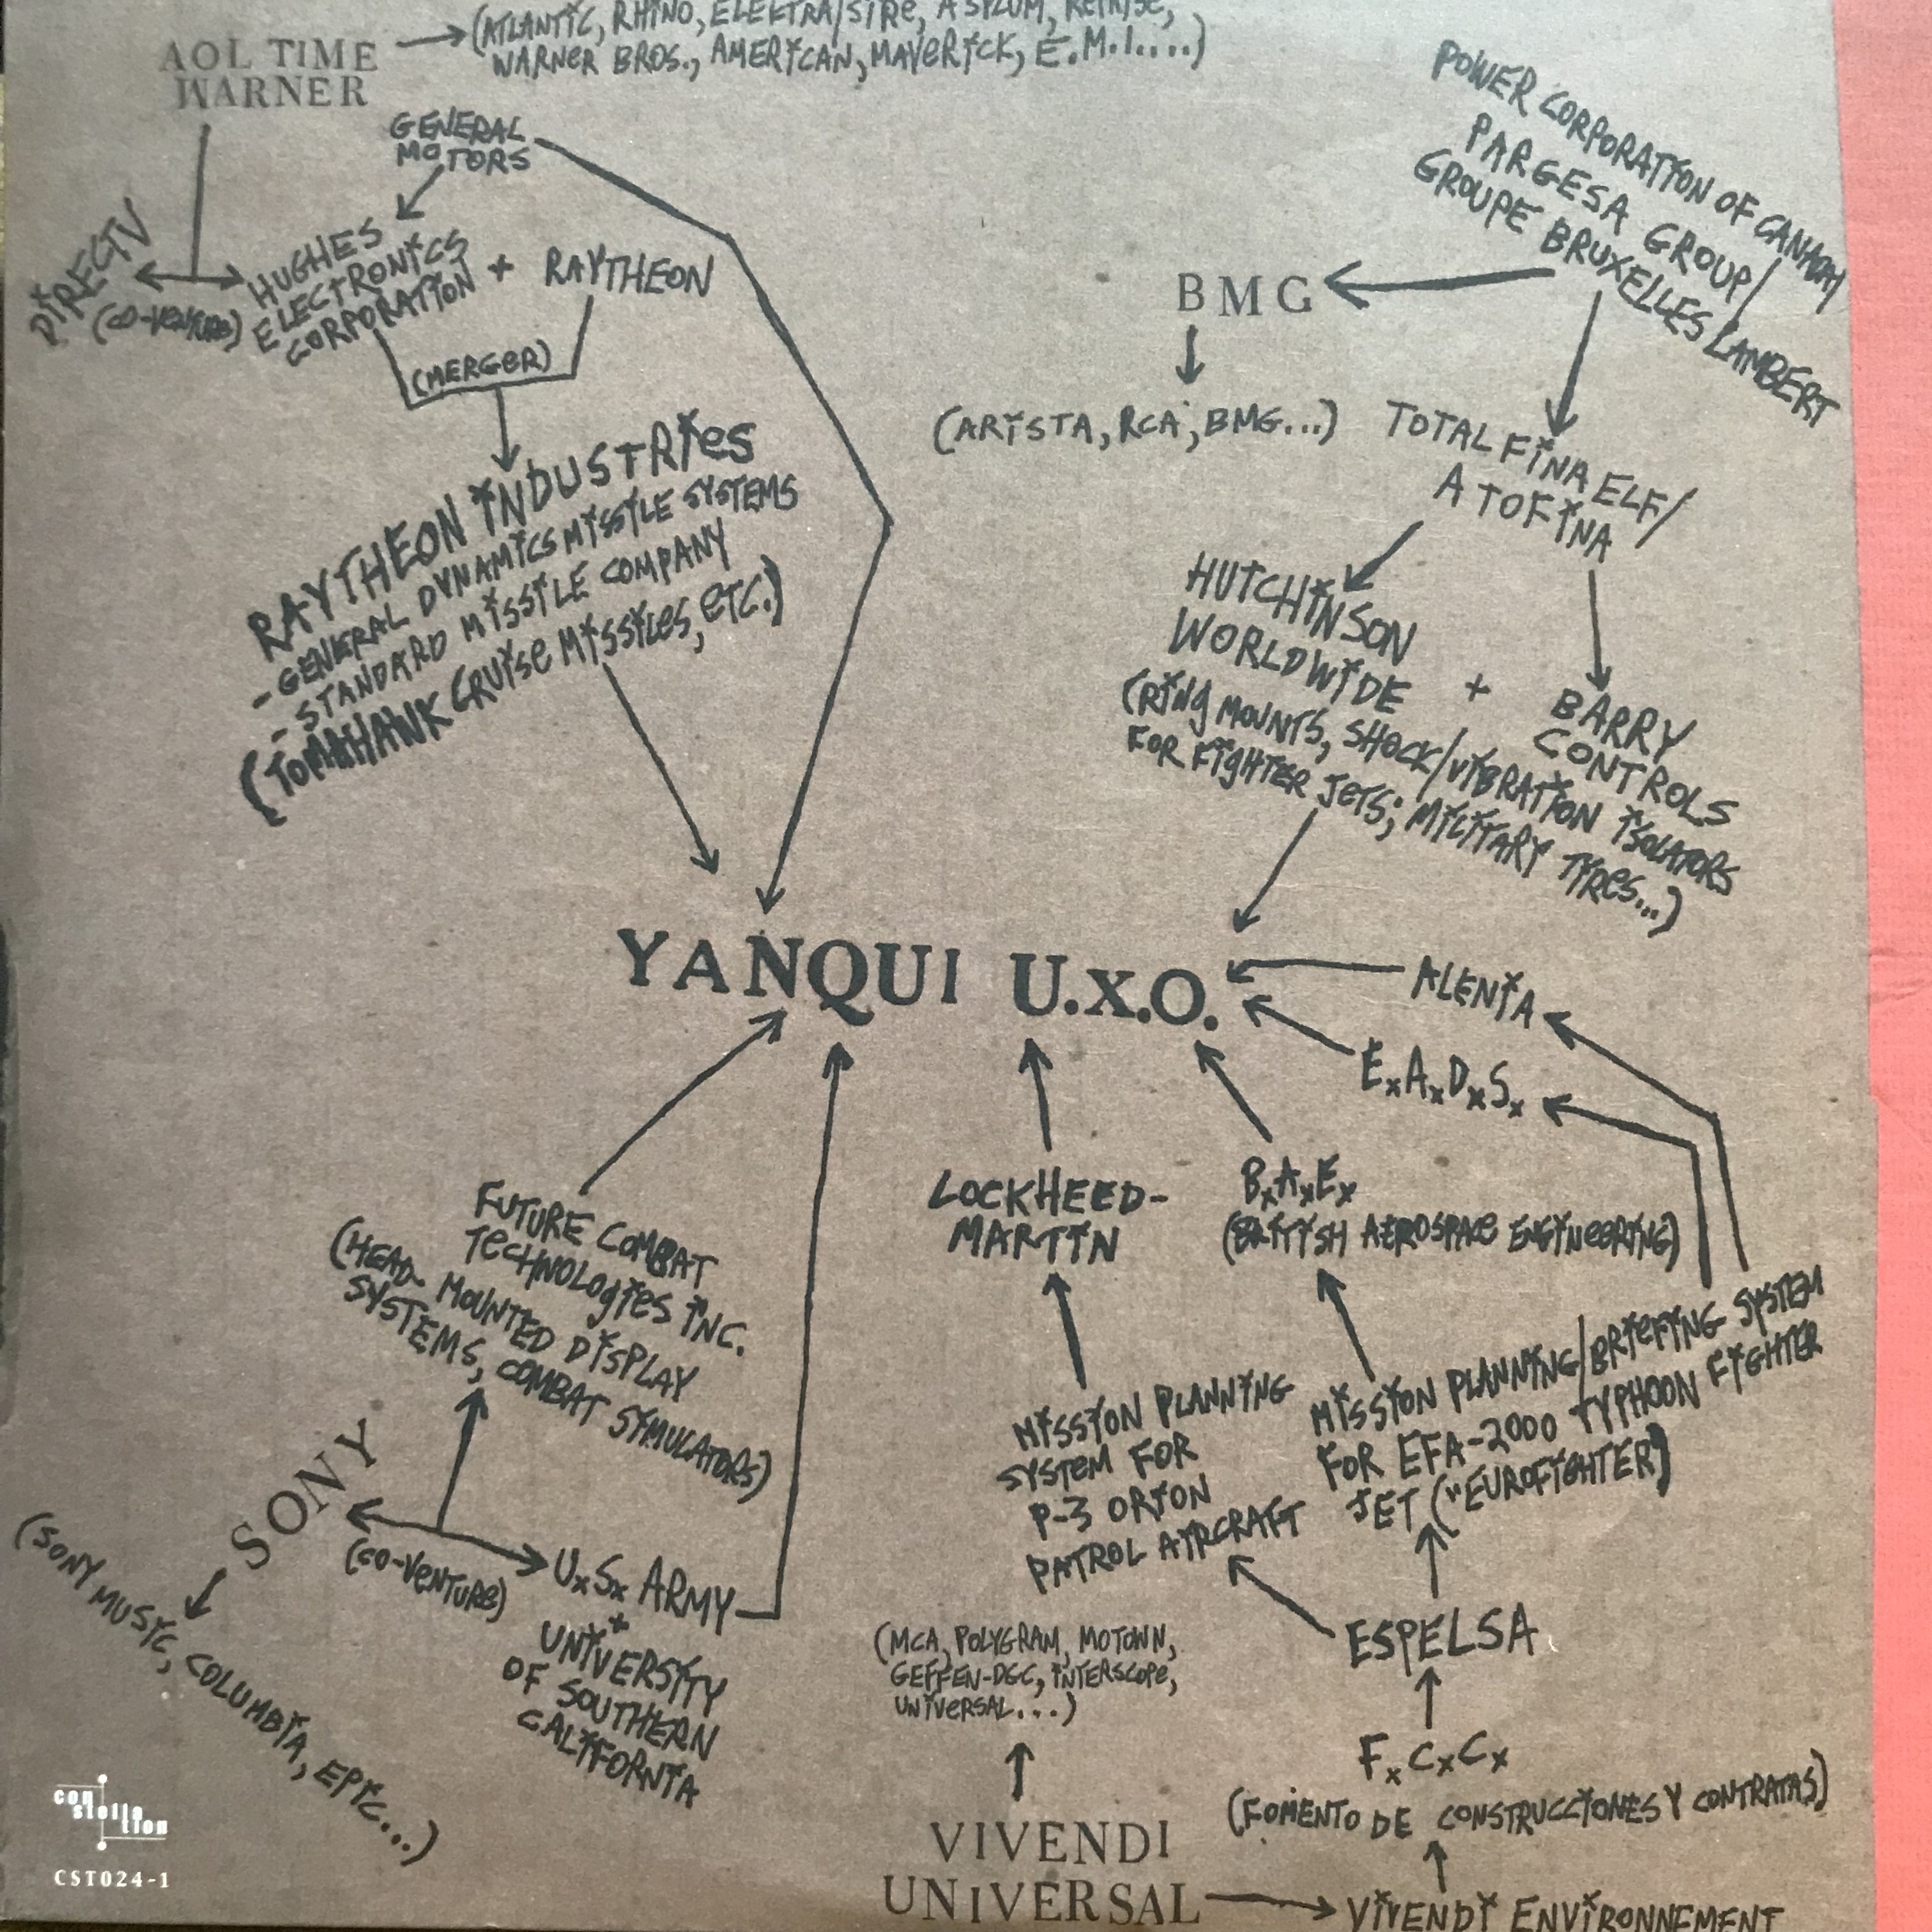 AOL TIME
WARNER
(ATLANTIC, RHINO, ELEKTRA/SIRE, ASYLUM, REPRISE,
WARNER BROS., AMERICAN, MAVERICK, E.M.I....)
GENERAL
MOTORS
DIRECTV
(CO-VENTURE)
HUGHES
ELECTRONICS
CORPORATION
+
RAYTHEON
(MERGER)
RAYTHEON INDUSTRIES
- GENERAL DYNAMICS MISSILE SYSTEMS
- STANDARD MISSILE COMPANY
(TOMAHAWK CRUISE MISSILES, ETC.)
POWER CORPORATION OF CANADA/
PARGESA GROUP/
GROUPE BRUXELLES LAMBERT
BMG
(ARISTA, RCA, BMG...)
TOTAL FINA ELF/
ATOFINA
HUTCHINSON
WORLDWIDE
+
BARRY
CONTROLS
(RING MOUNTS, SHOCK/VIBRATION ISOLATORS
FOR FIGHTER JETS; MILITARY TYRES...)
YANQUI U.X.O.
ALENIA
ExAxDxSx
LOCKHEED-
MARTIN
BxAxEx
(BRITISH AEROSPACE ENGINEERING)
FUTURE COMBAT
TECHNOLOGIES INC.
(HEAD-MOUNTED DISPLAY
SYSTEMS, COMBAT SIMULATORS)
SONY
(SONY MUSIC, COLUMBIA, EPIC...)
(CO-VENTURE)
UxSx ARMY
+
UNIVERSITY
OF SOUTHERN
CALIFORNIA
MISSION PLANNING
SYSTEM FOR
P-3 ORION
PATROL AIRCRAFT
MISSION PLANNING/BRIEFING SYSTEM
FOR EFA-2000 TYPHOON FIGHTER
JET ("EUROFIGHTER)
ESPELSA
(MCA, POLYGRAM, MOTOWN,
GEFFEN-DGC, INTERSCOPE,
UNIVERSAL...)
FxCxCx
(FOMENTO DE CONSTRUCCIONES Y CONTRATAS)
VIVENDI
UNIVERSAL
VIVENDI ENVIRONNEMENT
con
stella
tion
CST024-1